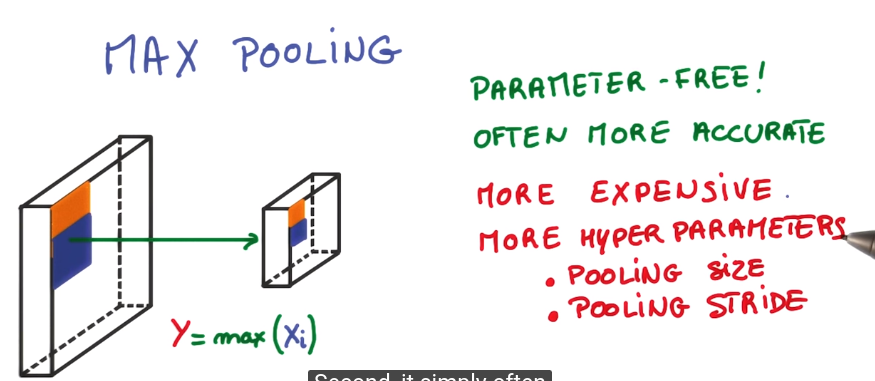 MAX POOLING
PARAMETER-FREE!
OFTEN MORE ACCURATE
MORE EXPENSIVE.
MORE HYPER PARAMETERS
• POOLING SIZE
• POOLING STRIDE
Y = max (Xi)
Second, it simply often